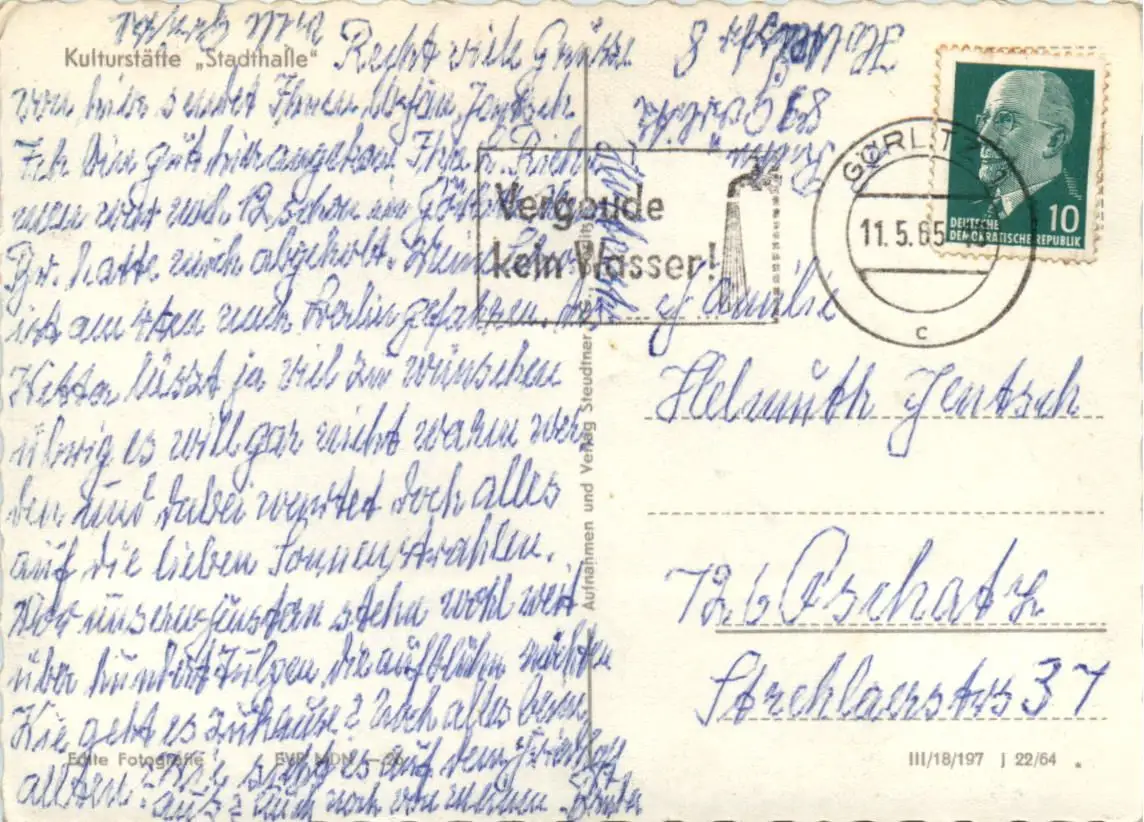 Kulturstätte „Stadthalle"
Recht viele Grüße
von hier sendet Ihnen Stefan Jentsch
Ich bin gut hier angekom
men war nach 12 schon in Görlitz
hatte mich abgeholt.
ist am nach Berlin gefahren. Das
Wetter lässt ja viel zu wünschen
übrig es will gar nicht warm wer
den und dabei wartet doch alles
auf die lieben Sonnenstrahlen.
Vor unseren Fenstern stehn wohl weit
über hundert Tulpen die aufblühn möchten
Wie geht es zuhause? Noch alles beim
alten? Wie sieht es auf dem Friedhof
aus? Auch noch von meinem
89 Görlitz
8
Aufnahmen und Verlag Steudtner
Vergeude
kein Wasser!
GÖRLITZ 1
11.5.65
c
DEUTSCHE
DEMOKRATISCHE REPUBLIK
10
Familie
Helmuth Jentsch
726 Oschatz
Strehlaerstrs 37
Echte Fotografie
EVP MDN —.26
III/18/197 J 22/64